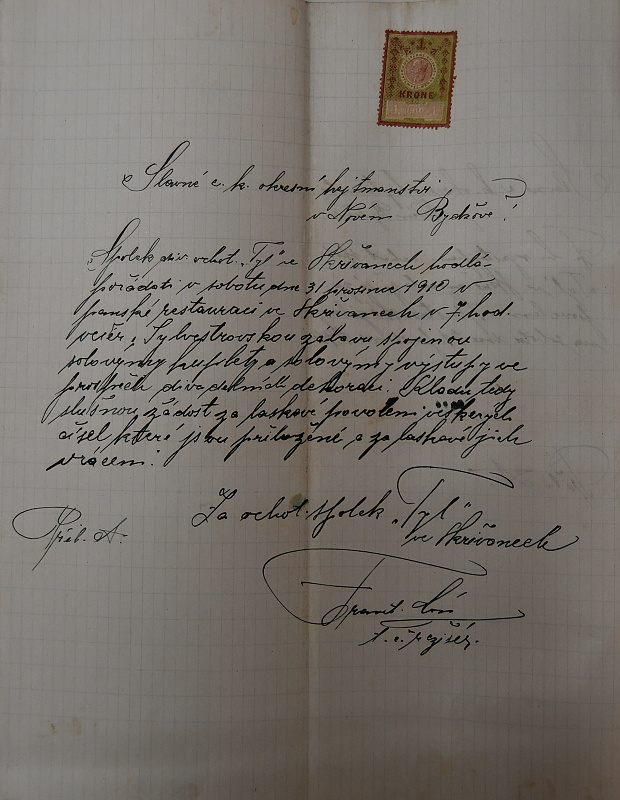 1
KRONE
Slavné c. k. okresní hejtmanství
v Novém Bydžově!
Spolek div. ochot. „Tyl" ve Skřivanech hodlá
pořádati v sobotu dne 31 prosince 1910 v
panské restauraci ve Skřivanech v 7 hod.
večer, Sylvestrovskou zábavu spojenou
solovými kuplety a solovými výstupy ve
prospěch divadelních dekorací. Kladu tedy
slušnou žádost za laskavé povolení veškerých
čísel které jsou přiložené a za laskavé jich
vrácení.
Za ochot. spolek „Tyl"
ve Skřivanech
Příl. A.
Frant.
t. č. režisér.